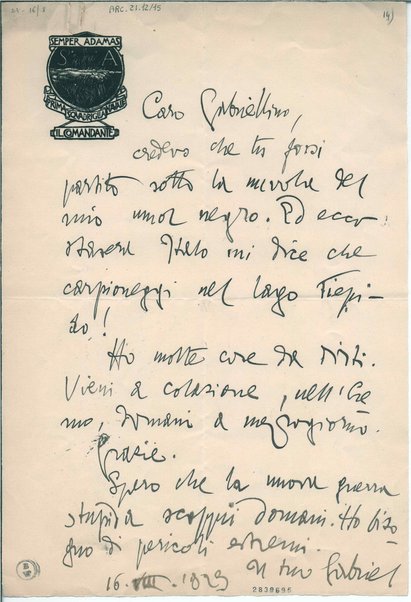 ARC. 21.12/15
SEMPER ADAMAS
S A
PRIMA SQUADRIGLIA NAVALE
IL COMANDANTE
Caro Gabriellino,
credevo che tu fossi
partito sotto la nuvola del
mio umor negro. Ed ecco
stasera Italo mi dice che
carpioneggi nel lago Tiepi-
do!
Ho molte cose da dirti.
Vieni a colazione, nell'
mo, domani a mezzogiorno.
Grazie.
Spero che la nuova guerra
stupida scoppii domani. Ho biso
gno di pericoli estremi.
Il tuo Gabriel
2839696